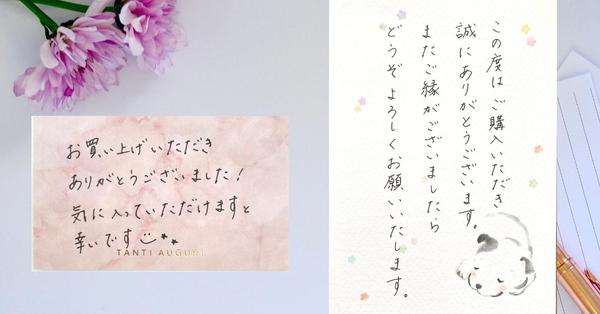 お買い上げいただき
ありがとうございました!
気に入っていただけますと
幸いです
TANTI AUGURI
この度は ご購入いただき
誠にありがとうございます。
またご縁がございましたら
どうぞ よろしくお願いいたします。